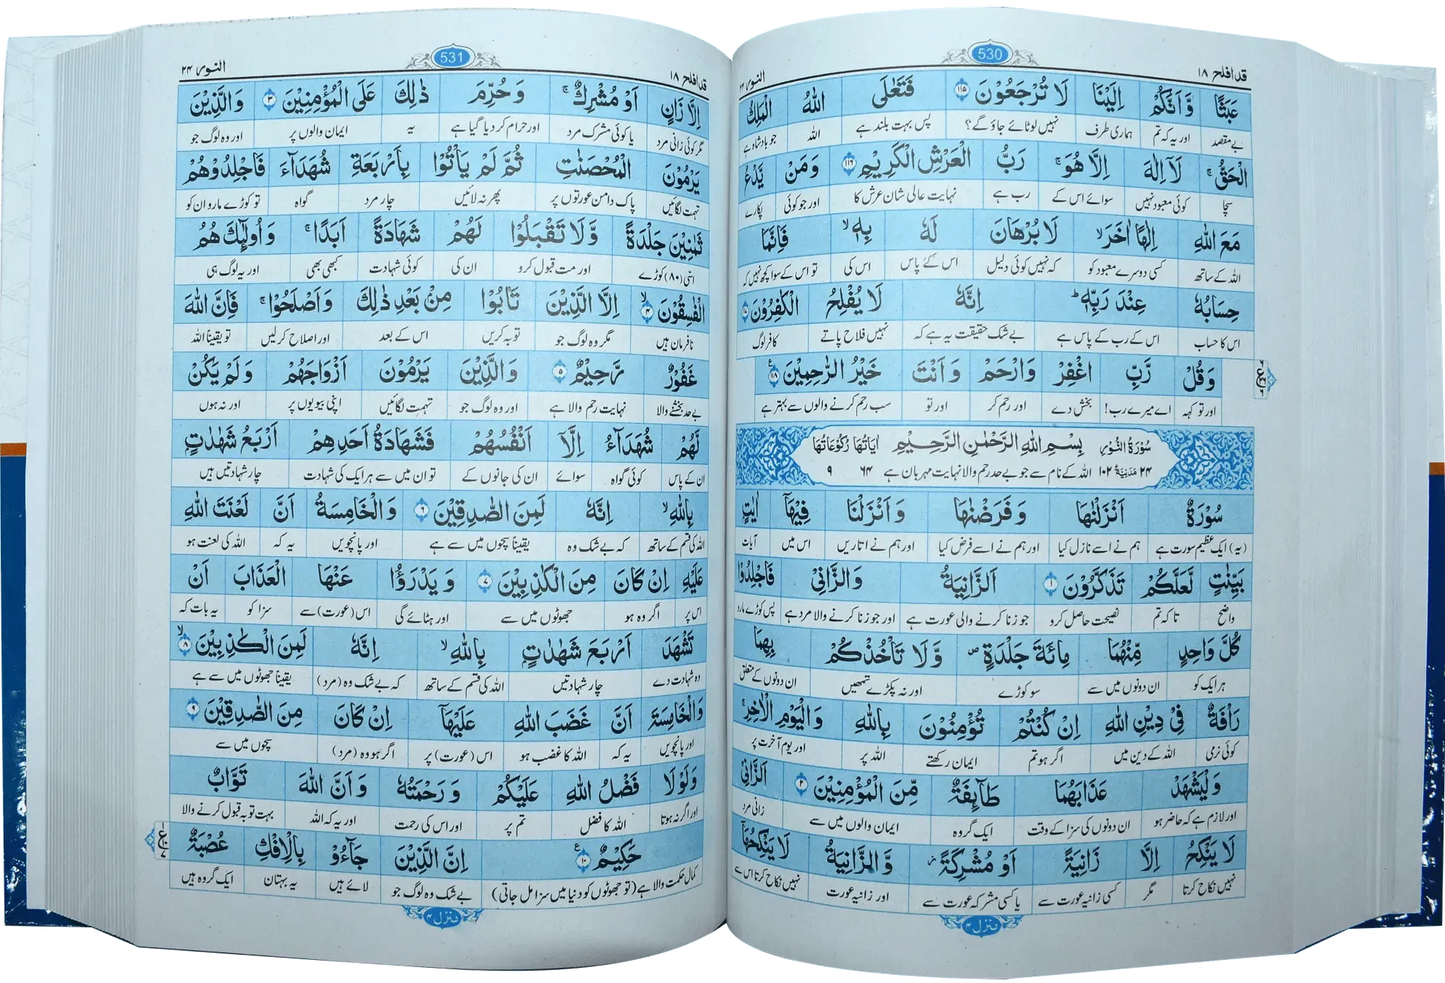 قد افلح ۱۸
530
النور ۲۴
عَبَثًا وَّ اَنَّكُمْ اِلَيْنَا لَا تُرْجَعُوْنَ ۱۱۵ فَتَعٰلَى اللهُ الْمَلِكُ
بے مقصد اور یہ کہ تم ہماری طرف نہیں لوٹائے جاؤ گے؟ پس بہت بلند ہے اللہ جو بادشاہ ہے
الْحَقُّ ۚ لَاۤ اِلٰهَ اِلَّا هُوَ ۚ رَبُّ الْعَرْشِ الْكَرِيْمِ ۱۱۶ وَ مَنْ يَّدْعُ
سچا کوئی معبود نہیں سوائے اس کے رب ہے نہایت عالی شان عرش کا اور جو کوئی پکارے
مَعَ اللهِ اِلٰهًا اٰخَرَ ۙ لَا بُرْهَانَ لَهٗ بِهٖ ۙ فَاِنَّمَا
اللہ کے ساتھ کسی دوسرے معبود کو کہ نہیں کوئی دلیل اس کے پاس اس کی تو اس کے سوا کچھ نہیں کہ
حِسَابُهٗ عِنْدَ رَبِّهٖ ؕ اِنَّهٗ لَا يُفْلِحُ الْكٰفِرُوْنَ
اس کا حساب اس کے رب کے پاس ہے بے شک حقیقت یہ ہے کہ نہیں فلاح پاتے کافر لوگ
وَ قُلْ رَّبِّ اغْفِرْ وَ ارْحَمْ وَ اَنْتَ خَيْرُ الرّٰحِمِيْنَ ۱۱۸
اور تو کہہ اے میرے رب! بخش دے اور رحم کر اور تو سب رحم کرنے والوں سے بہتر ہے
سُوْرَةُ النُّوْرِ بِسْمِ اللهِ الرَّحْمٰنِ الرَّحِيْمِ اٰيَاتُهَا رُكُوْعَاتُهَا
۲۴ مَدَنِيَّةٌ ۱۰۲ اللہ کے نام سے جو بے حد رحم والا نہایت مہربان ہے ۶۴ ۹
سُوْرَةٌ اَنْزَلْنٰهَا وَ فَرَضْنٰهَا وَ اَنْزَلْنَا فِيْهَاۤ اٰيٰتٍ
(یہ) ایک عظیم سورت ہے ہم نے اسے نازل کیا اور ہم نے اسے فرض کیا اور ہم نے اتاریں اس میں آیات
بَيِّنٰتٍ لَّعَلَّكُمْ تَذَكَّرُوْنَ ۱ اَلزَّانِيَةُ وَ الزَّانِيْ فَاجْلِدُوْا
واضح تاکہ تم نصیحت حاصل کرو جو زنا کرنے والی عورت ہے اور جو زنا کرنے والا مرد ہے پس کوڑے مارو
كُلَّ وَاحِدٍ مِّنْهُمَا مِائَةَ جَلْدَةٍ ۪ وَّ لَا تَاْخُذْكُمْ بِهِمَا
ہر ایک کو ان دونوں میں سے سو کوڑے اور نہ پکڑے تمہیں ان دونوں کے متعلق
رَاْفَةٌ فِيْ دِيْنِ اللهِ اِنْ كُنْتُمْ تُؤْمِنُوْنَ بِاللهِ وَ الْيَوْمِ الْاٰخِرِ ۚ
کوئی نرمی اللہ کے دین میں اگر ہو تم ایمان رکھتے اللہ پر اور یوم آخرت پر
وَ لْيَشْهَدْ عَذَابَهُمَا طَآئِفَةٌ مِّنَ الْمُؤْمِنِيْنَ ۲ اَلزَّانِيْ
اور لازم ہے کہ حاضر ہو ان دونوں کی سزا کے وقت ایک گروہ ایمان والوں میں سے زانی مرد
لَا يَنْكِحُ اِلَّا زَانِيَةً اَوْ مُشْرِكَةً ۫ وَّ الزَّانِيَةُ لَا يَنْكِحُهَاۤ
نہیں نکاح کرتا مگر کسی زانیہ عورت سے یا کسی مشرکہ عورت سے اور زانیہ عورت نہیں نکاح کرتا اس سے
منزل ۴
قد افلح ۱۸
531
النور ۲۴
اِلَّا زَانٍ اَوْ مُشْرِكٌ ۚ وَ حُرِّمَ ذٰلِكَ عَلَى الْمُؤْمِنِيْنَ ۳ وَ الَّذِيْنَ
مگر کوئی زانی مرد یا کوئی مشرک مرد اور حرام کر دیا گیا ہے یہ ایمان والوں پر اور وہ لوگ جو
يَرْمُوْنَ الْمُحْصَنٰتِ ثُمَّ لَمْ يَاْتُوْا بِاَرْبَعَةِ شُهَدَآءَ فَاجْلِدُوْهُمْ
تہمت لگائیں پاک دامن عورتوں پر پھر نہ لائیں چار مرد گواہ تو کوڑے مارو ان کو
ثَمٰنِيْنَ جَلْدَةً وَّ لَا تَقْبَلُوْا لَهُمْ شَهَادَةً اَبَدًا ۚ وَ اُولٰٓئِكَ هُمُ
اسّی (۸۰) کوڑے اور مت قبول کرو ان کی کوئی شہادت کبھی بھی اور یہ لوگ ہی
الْفٰسِقُوْنَ ۴ اِلَّا الَّذِيْنَ تَابُوْا مِنْۢ بَعْدِ ذٰلِكَ وَ اَصْلَحُوْا ۚ فَاِنَّ اللهَ
نافرمان ہیں مگر وہ لوگ جو توبہ کریں اس کے بعد اور اصلاح کر لیں تو یقیناً اللہ
غَفُوْرٌ رَّحِيْمٌ ۵ وَ الَّذِيْنَ يَرْمُوْنَ اَزْوَاجَهُمْ وَ لَمْ يَكُنْ
بے حد بخشنے والا نہایت رحم والا ہے اور وہ لوگ جو تہمت لگائیں اپنی بیویوں پر اور نہ ہوں
لَّهُمْ شُهَدَآءُ اِلَّاۤ اَنْفُسُهُمْ فَشَهَادَةُ اَحَدِهِمْ اَرْبَعُ شَهٰدٰتٍۭ
ان کے پاس کوئی گواہ سوائے ان کی جانوں کے تو ان میں سے ہر ایک کی شہادت چار شہادتیں ہیں
بِاللهِ ۙ اِنَّهٗ لَمِنَ الصّٰدِقِيْنَ ۶ وَ الْخَامِسَةُ اَنَّ لَعْنَتَ اللهِ
اللہ کی قسم کے ساتھ کہ بے شک وہ یقیناً سچوں میں سے ہے اور پانچویں یہ کہ اللہ کی لعنت ہو
عَلَيْهِ اِنْ كَانَ مِنَ الْكٰذِبِيْنَ ۷ وَ يَدْرَؤُا عَنْهَا الْعَذَابَ اَنْ
اس پر اگر وہ ہو جھوٹوں میں سے اور ہٹائے گی اس (عورت) سے سزا کو یہ بات کہ
تَشْهَدَ اَرْبَعَ شَهٰدٰتٍۭ بِاللهِ ۙ اِنَّهٗ لَمِنَ الْكٰذِبِيْنَ ۸
وہ شہادت دے چار شہادتیں اللہ کی قسم کے ساتھ کہ بے شک وہ (مرد) یقیناً جھوٹوں میں سے ہے
وَ الْخَامِسَةَ اَنَّ غَضَبَ اللهِ عَلَيْهَاۤ اِنْ كَانَ مِنَ الصّٰدِقِيْنَ ۹
اور پانچویں یہ کہ اللہ کا غضب ہو اس (عورت) پر اگر ہو وہ (مرد) سچوں میں سے
وَ لَوْ لَا فَضْلُ اللهِ عَلَيْكُمْ وَ رَحْمَتُهٗ وَ اَنَّ اللهَ تَوَّابٌ
اور اگر نہ ہوتا اللہ کا فضل تم پر اور اس کی رحمت اور یہ کہ اللہ بہت توبہ قبول کرنے والا
حَكِيْمٌ ۱۰ اِنَّ الَّذِيْنَ جَآءُوْ بِالْاِفْكِ عُصْبَةٌ
کمال حکمت والا ہے (تو جھوٹوں کو دنیا میں سزا مل جاتی) بے شک وہ لوگ جو لائے ہیں یہ بہتان ایک گروہ ہیں
منزل ۴